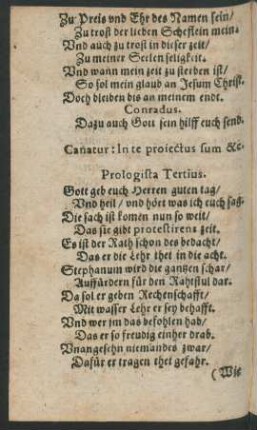 Zu Preis vnd Ehr des Namen sein/
Zu trost der lieben Scheflein mein.
Vnd auch zu trost in dieser zeit/
Zu meiner Seelen seligkeit.
Vnd wann mein zeit zu sterben ist/
So sol mein glaub an Jesum Christ.
Doch bleiben bis an meinem endt.
Conradus.
Dazu auch Gott sein hilff euch send.
Canatur: In te proiectus sum &c.
Prologista Tertius.
Gott geb euch Herren guten tag/
Vnd heil/ vnd hört was ich euch sag.
Die sach ist komen nun so weit/
Das sie gibt protestirens zeit.
Es ist der Rath schon des bedacht/
Das er die Lehr thet in die acht.
Stephanum wird die gantzen schar/
Auffürdern für den Rahtstul dar.
Da sol er geben Rechenschafft/
Mit wasser Lehr er sey behafft.
Vnd wer jm das befohlen hab/
Das er so freudig einher drab.
Vnangesehn niemandes zwar/
Dafür er tragen thet gefahr.
(Wie